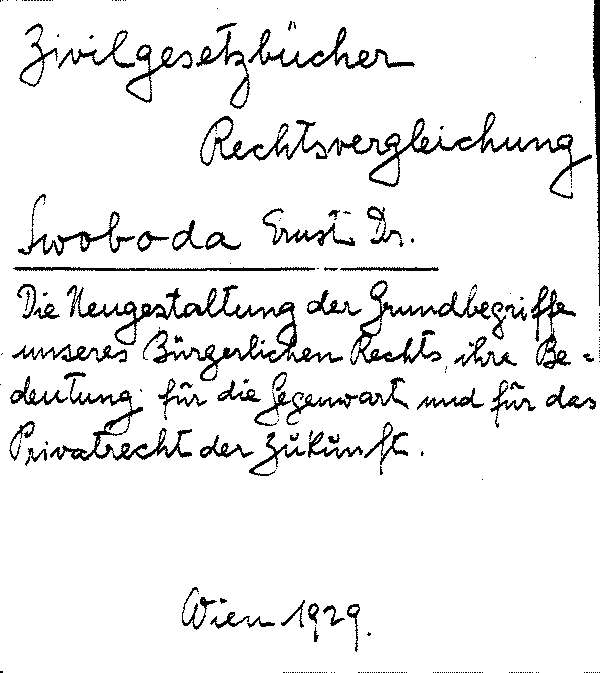 Zivilgesetzbücher
Rechtsvergleichung
Swoboda Ernst Dr.
Die Neugestaltung der Grundbegriffe
unseres Bürgerlichen Rechts, ihre Be=
deutung für die Gegenwart und für das
Privatrecht der Zukunft.
Wien 1929.